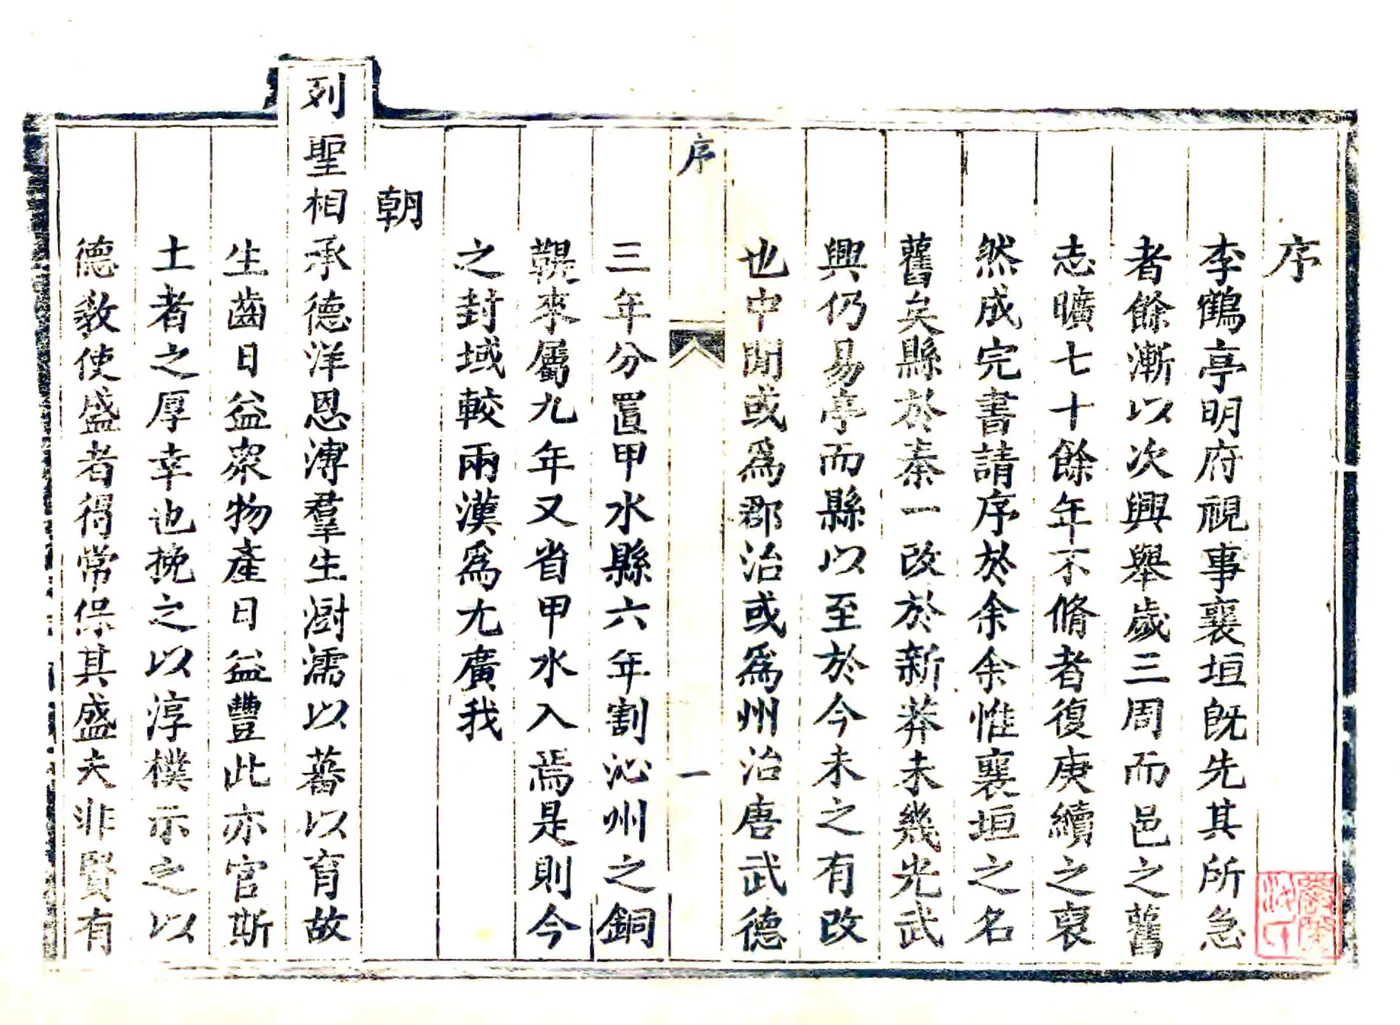 序
李鶴亭明府視事襄垣旣先其所急
者餘漸以次興舉歲三周而邑之舊
志曠七十餘年不脩者復庚續之裒
然成完書請序於余余惟襄垣之名
舊矣縣於秦一改於新莽未幾光武
興仍易亭而縣以至於今未之有改
也中閒或爲郡治或爲州治唐武德
序
一
三年分置甲水縣六年割沁州之銅
鞮來屬九年又省甲水入焉是則今
之封域較兩漢爲尤廣我
朝
列聖相承德洋恩溥羣生澍濡以蕃以育故
生齒日益衆物產日益豐此亦官斯
土者之厚幸也挽之以淳樸示之以
德敎使盛者得常保其盛夫非賢有